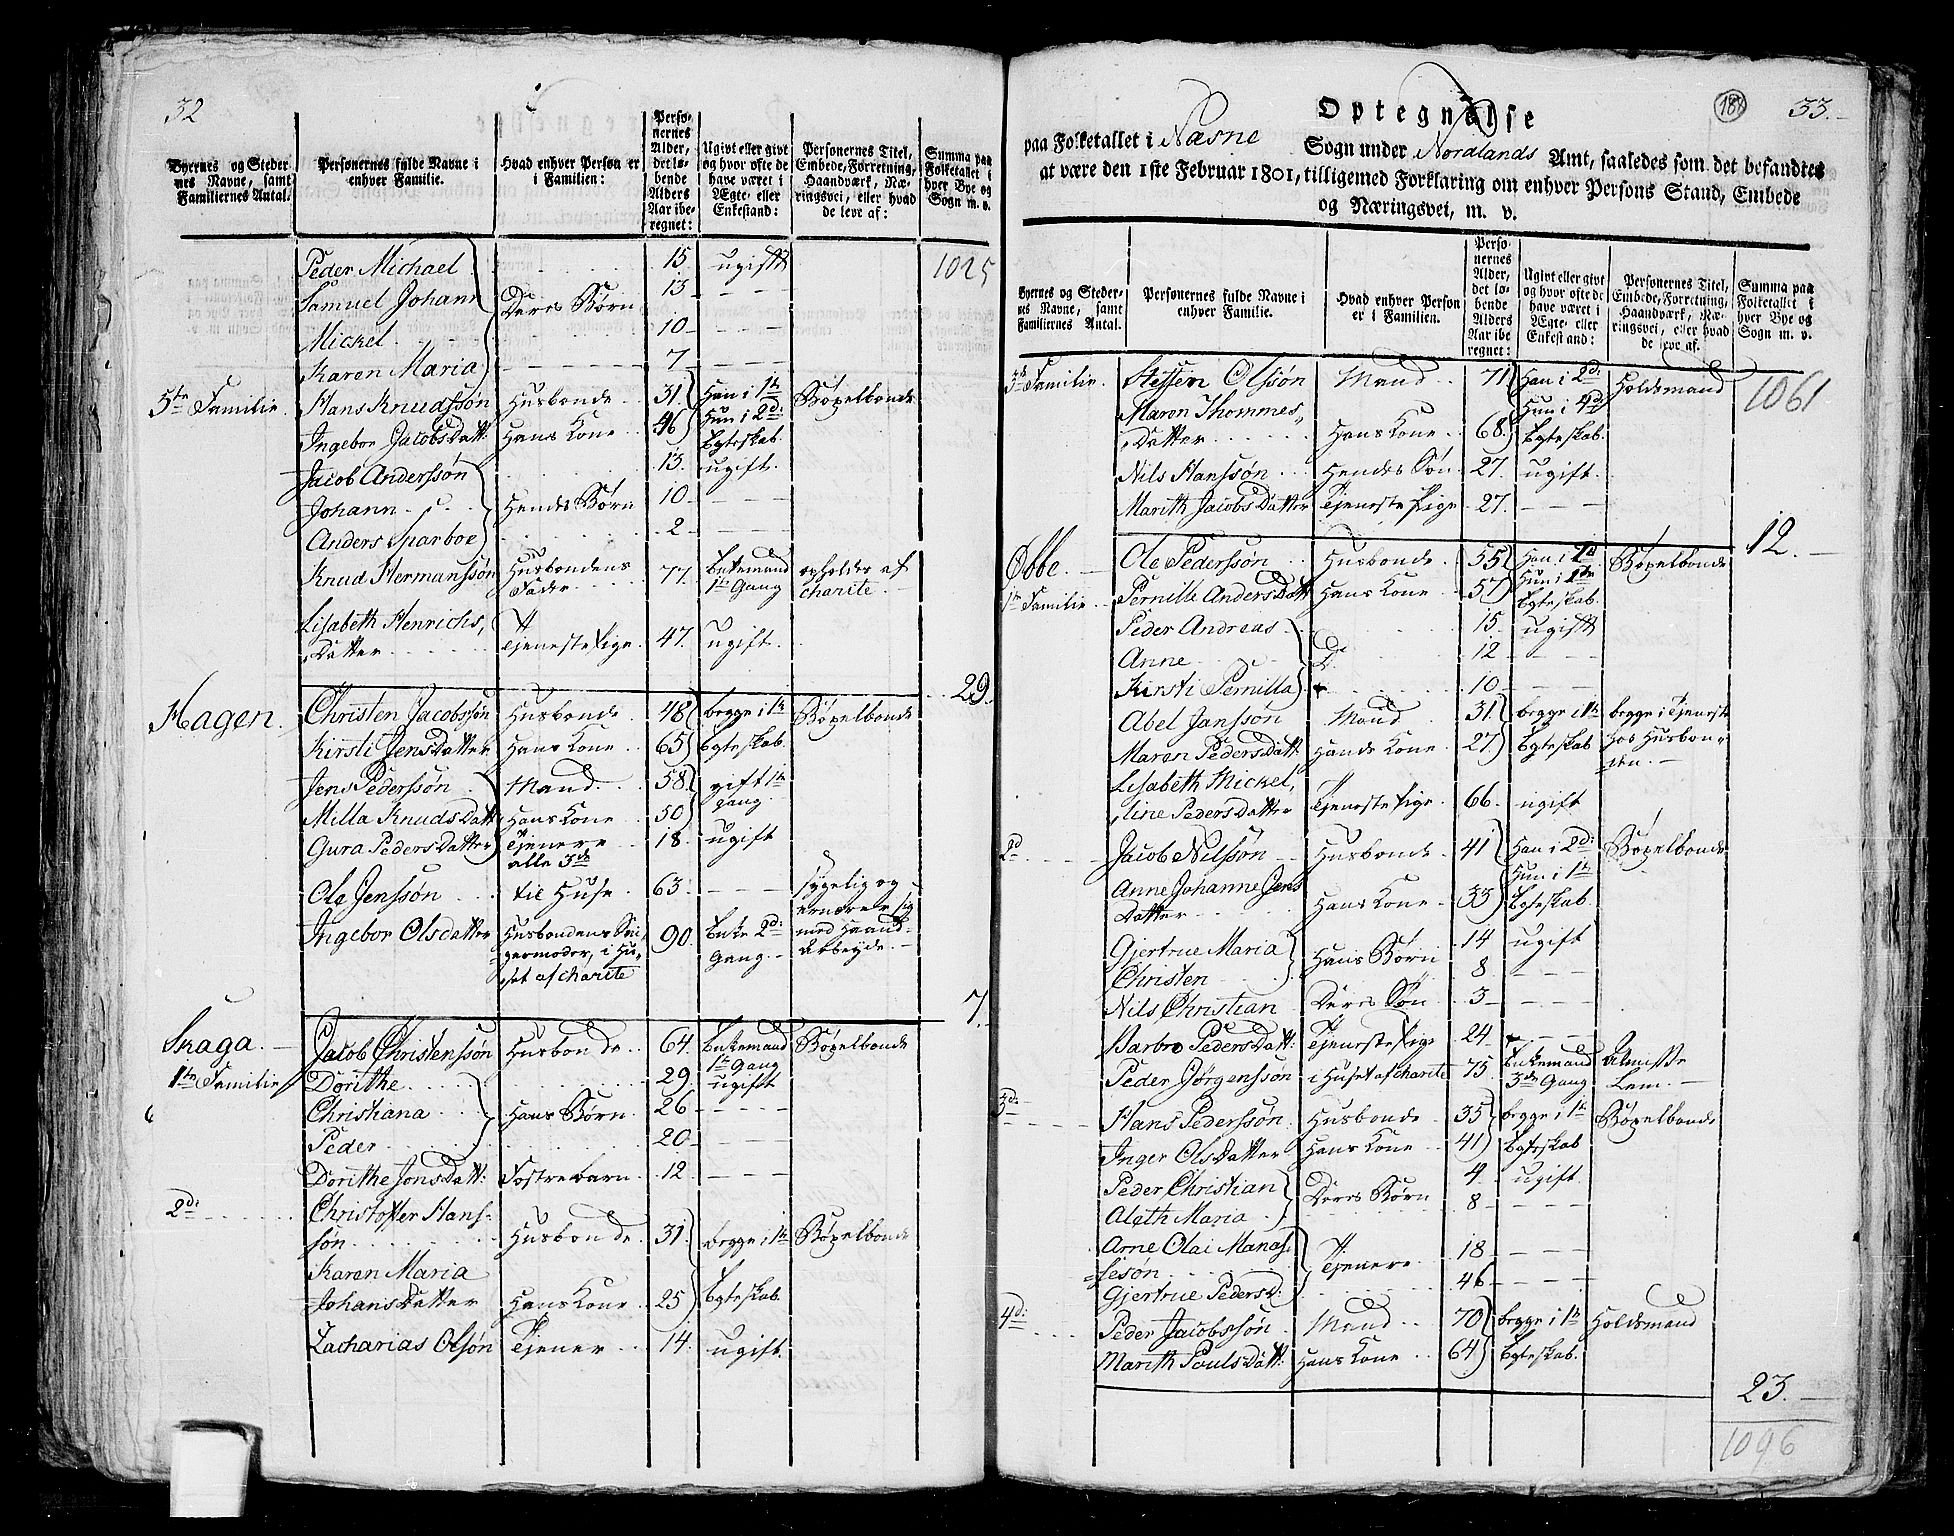 32
Byernes og Steder-
nes Navne, samt
Familiernes Antal.
Personernes fulde Navne i
enhver Familie.
Hvad enhver Person er
i Familien:
Perso-
nernes
Alder,
det lø-
bende
Alders
Aar ibe-
regnet:
Ugivt eller givt
og hvor ofte de
have været i
Ægte- eller
Enkestand:
Personernes Titel,
Embede, Forretning,
Haandværk, Næ-
ringsvei, eller hvad
de leve af:
Summa paa
Folketallet i
hver Bye og
Sogn m. v.
Peder Michael 15 ugift 1025
Samuel Johann Deres Børn 13 - -
Mickel 10 - - -
Karen Maria 7 - - -
5te Familie. Hans Knudssøn Husbonde 31 Han i 1te Bøxelbonde
Ingebor Jacobs Datt: Hans Kone 46 Hun i 2d:
Egteskab
Jacob Anderssøn 13 ugift.
Johann Hendes Børn 10 - - -
Anders Sparboe 2 - - -
Knud Hermanssøn Husbondens
Fader 77. Enkemand
1te Gang opholdes af
charite.
Lisabeth Henrichs,
Datter Tjeneste Pige 47. ugift.
29.
Hagen. Christen Jacobssøn Husbonde 48 begge i 1te Bøxelbonde
Kirsti Jens Datter Hans Kone 65 Egteskab
Jens Pederssøn Mand 58 gift 1te
gang
Milla Knuds Datt Hans Kone 50
Gura Peders Datter Tjenere
alle 3de 18. ugift
Ole Jenssøn til Huse 63. - - - sygelig og
ernærer sig
med Haand-
Arbeyde.
Ingebor Olsdatter Husbondens Svi,
germoder, i Hu,
set af charite 90. Enke 2d:
Gang.
7.
Skaga.
1te Familie Jacob Christenssøn Husbonde 64. Enkemand
1te Gang Bøxelbonde
Dorithe 29. ugift
Christiana Hans Børn 26 - - - -
Peder 20 - - -
Dorithe Jons Datt: Fosterbarn 12 - - -
2d: Christoffer Hans-
søn Husbonde 31 begge i 1te Bøxelbonde
Karen Maria
Johans Datter Hans Kone 25 Egteskab.
Zacharias Olsøn Tjener 14. ugift.
33.
Optegnelse
paa Folketallet i Næsne Sogn under Nordlands Amt, saaledes som det befandtes
at være den 1ste Februar 1801, tilligemed Forklaring om enhver Persons Stand, Embede
og Næringsvei, m. v.
Byernes og Steder-
nes Navne, samt
Familiernes Antal.
Personernes fulde Navne i
enhver Familie.
Hvad enhver Person
er i Familien.
Perso-
nernes
Alder,
det lø-
bende
Alders
Aar ibe-
regnet:
Ugivt eller givt
og hvor ofte de
have været i
Ægte- eller
Enkestand:
Personernes Titel,
Embede, Forretning,
Haandværk, Næ-
ringsvei, eller hvad
de leve af.
Summa paa
Folketallet i
hver Bye og
Sogn m. v.
3d Familie. Steffen Olssøn Mand 71 Han i 2d: Holdsmand 1061
Maren Thommes,
Datter Hans Kone 68. Hun i 4de
Egteskab.
Nils Hanssøn Hendes Søn 27. ugift.
Marith Jacobs Datter Tjeneste Pige 27. - - -
12.
Øbbe.
1te Familie Ole Pederssøn Husbonde 55 Han i 1te Bøxelbonde
Pernille Anders Datt Hans Kone 57 Hun i 2de
Egteskab.
Peder Andreas 15 ugift
Anne D: 12 - - -
Kirsti Pernilla 10 - - -
Abel Janssøn Mand 31 begge i 1te begge i Tjeneste
Maren Peders Datt: Hands Kone 27 Egteskab hos Husbon,
den.
Lisabeth Mickel,
line Peders Datter Tjeneste Pige 66. ugift
2d Jacob Nilssøn Husbonde 41 Han i 2d: Bøxelbonde
Anne Johanne Jens
Datter Hans Kone 33 Hun i 1te
Egteskab.
Gjertrue Maria Hans Børn 14 ugift
Christen 8 - - -
Nils Christian Deres Søn 3 - - -
Barbro Peders Datt: Tjeneste Pige 24 - - -
Peder Jørgenssøn i Huset af charite 75. Enkemand
3de Gang Almisse
Lem.
3d: Hans Pederssøn Husbonde 35 begge i 1te Bøxelbonde
Inger Ols Datter Hans Kone 41 Egteskab
Peder Christian Deres Børn 4 ugift
Aleth Maria 8 - - -
Arne Olai Manas,
sesøn Tjenere 18 - - -
Gjertrue Peders D: 46 - - -
4d: Peder Jacobssøn Mand 70 begge i 1te Holdsmand
Marith Pouls Datt: Hans Kone 64 Egteskab.
23.
1096